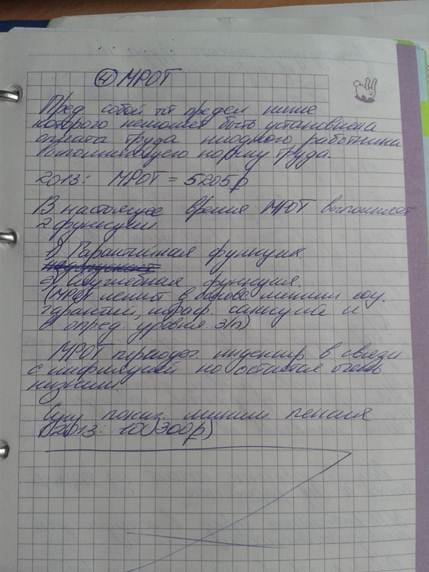 ④ МРОТ
Пред собой тот предел ниже
которого не может быть установлена
оплата труда наёмного работника
выполняющего норму труда.
2013: МРОТ = 5205р
В настоящее время МРОТ выполняет
2 функции
1) Гарантийная функция
2) Служебная функция.
(МРОТ лежит в основе миним соц.
гарантий, штраф. санкций и
в опред уровня З/п)
МРОТ периодич индексир в связи
с инфляцией но остаётся очень
низким.
Сущ понят. миним пенсия
(2013: 100 300р)